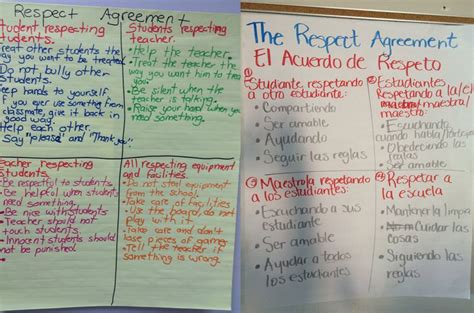 Respect Agreement
Student respecting
students.
Treat other students the
way you want to be treated.
Do not bully other
Students.
Keep hands to yourself.
If you ever use something from
classmate, give it back in
good way.
Help each other.
Say "please" and "Thank you".
Students respecting
teacher.
• Help the teacher.
• Treat the teacher the
way you want him to treat
you.
• Be silent when the
teacher is talking.
• Raise your hand when you
need something.
Teacher respecting
Students.
• Be respectful to students.
• Be helpful when students
need something.
• Be nice with students
• Teacher should not
touch students.
• Innocent students should
not be punished.
All respecting equipment
and facilities.
• Do not steal equipment
from the school.
• Take care of facilities
• Use the board, do not
play with it.
• Take care and don't
lose pieces of games
• Tell the teacher if
something is wrong.
The Respect Agreement
El Acuerdo de Respeto
① Estudiante respetando
a otro estudiante:
• Compartiendo
• Ser amable
• Ayudando
• Seguir las reglas
② Estudiantes
Respetando a la/el
maestra/
maestro:
• Escuchando
cuando habla
• Obedeciendo las
reglas
• Ser amable
③ Maestro/a respetando
a los estudiantes:
• Escuchando a sus
estudiante
• Ser amable
• Ayudar a todos
los estudiantes
④ Respetar a
la escuela
• Mantener la limpia
• Cuidar las
cosas
• Siguiendo las
reglas